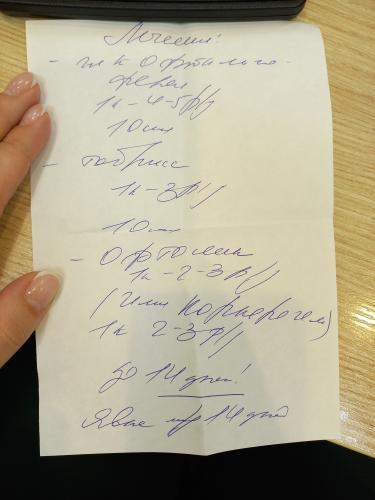 Лечение!
- гл к офтальмо-
ферон
1к - 4-5 р/д
10 дн
- тобрисс
1к - 3 р/д
10 дн
- офтолик
1к - 2-3 р/д
(или корнерегель)
1к 2-3 р/д
до 14 дней!
Явка 14 дней